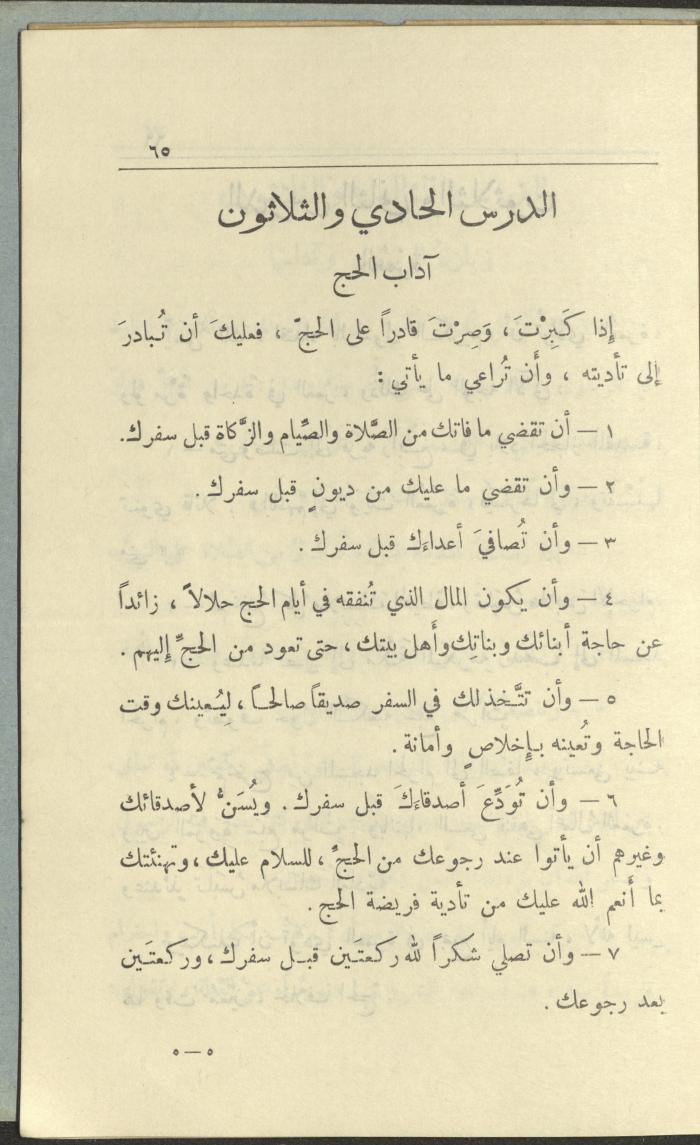 ٦٥
الدرس الحادي والثلاثون
آداب الحج
إِذا كَبِرْتَ، وَصِرْتَ قادراً على الحجّ ، فعليكَ أن تُبادرَ
إلى تأديته ، وأَن تُراعي ما يأتي :
١ — أن تقضي ما فاتك من الصَّلاة والصِّيام والزَّكاة قبل سفرك.
٢ — وأن تقضي ما عليك من ديونٍ قبل سفرك .
٣ — وأن تُصافيَ أعداءَك قبل سفرك .
٤ — وأن يكون المال الذي تُنفقه في أيام الحج حلالاً ، زائداً
عن حاجة أبنائك وبناتِك وأَهل بيتك ، حتى تعود من الحجِّ إِليهم .
٥ — وأن تتَّخذ لك في السفر صديقاً صالحاً ، لِيُعينك وقت
الحاجة وتُعينه بإِخلاصٍ وأمانة .
٦ — وأن تُوَدِّعَ أصدقاءَكَ قبل سفرك . ويُسَنُّ لأصدقائك
وغيرهم أن يأتوا عند رجوعك من الحجِّ ، للسلام عليك ، وتهنئتك
بما أَنعم الله عليك من تأدية فريضة الحج .
٧ — وأن تصلي شكراً لله ركعتَين قبل سفرك ، وركعتَين
بعد رجوعك .
٥ — ٥